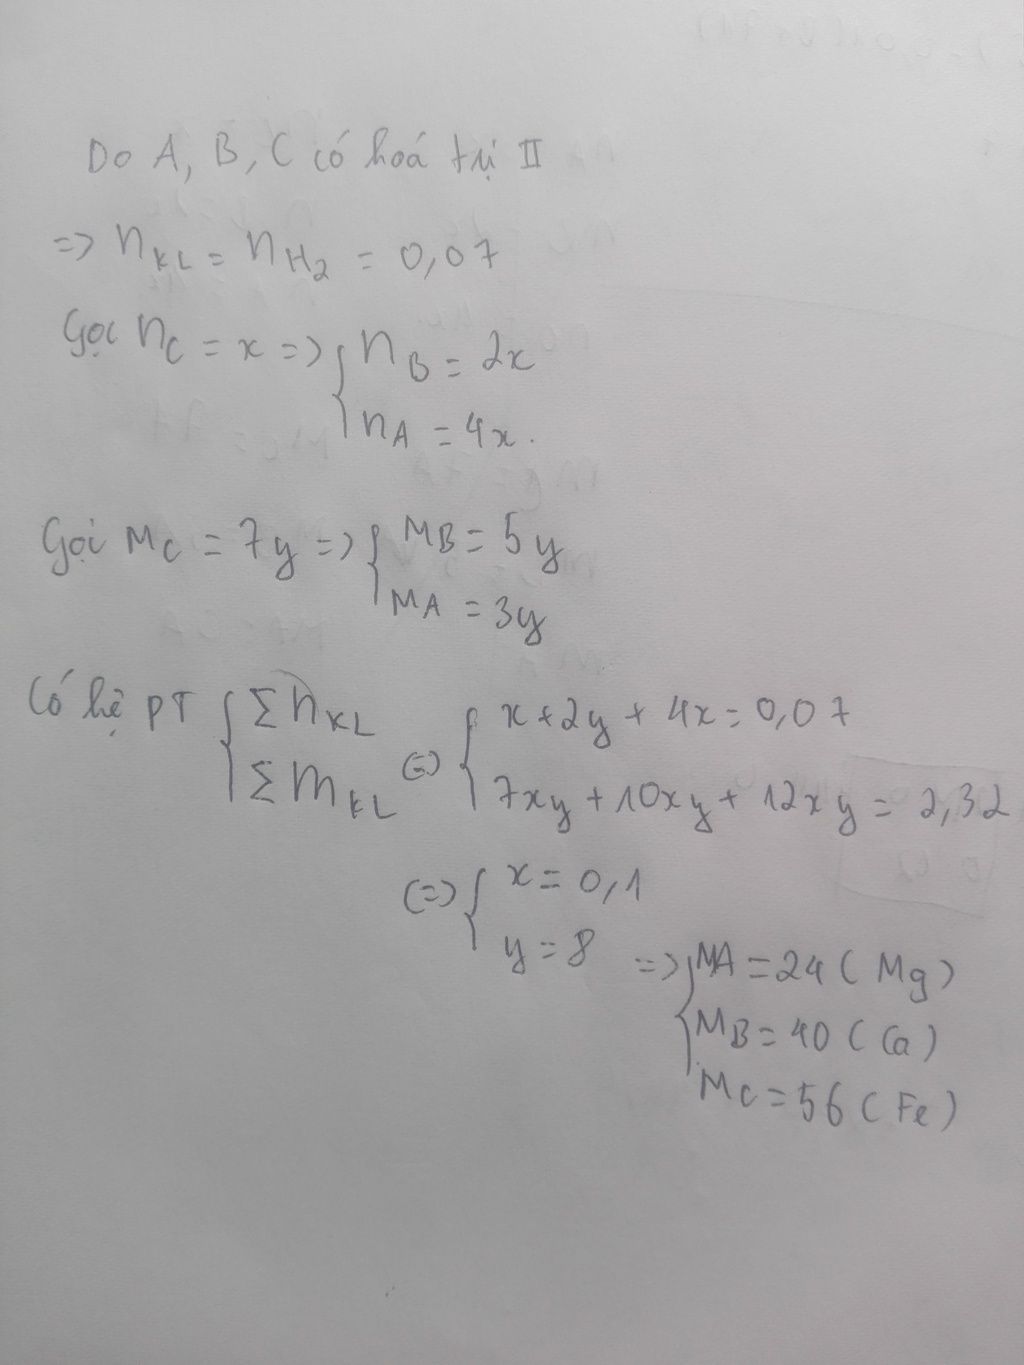 Do A, B, C có hoá trị II
=> nKL = nH2 = 0,07
Gọi nC = x => { nB = 2x
nA = 4x.
Gọi MC = 7y => { MB = 5y
MA = 3y
Có hệ PT { Σ nKL <=> { x + 2y + 4x = 0,07
Σ mKL 7xy + 10xy + 12xy = 2,32
(=) { x = 0,1
y = 8 => { MA = 24 (Mg)
MB = 40 (Ca)
MC = 56 (Fe)